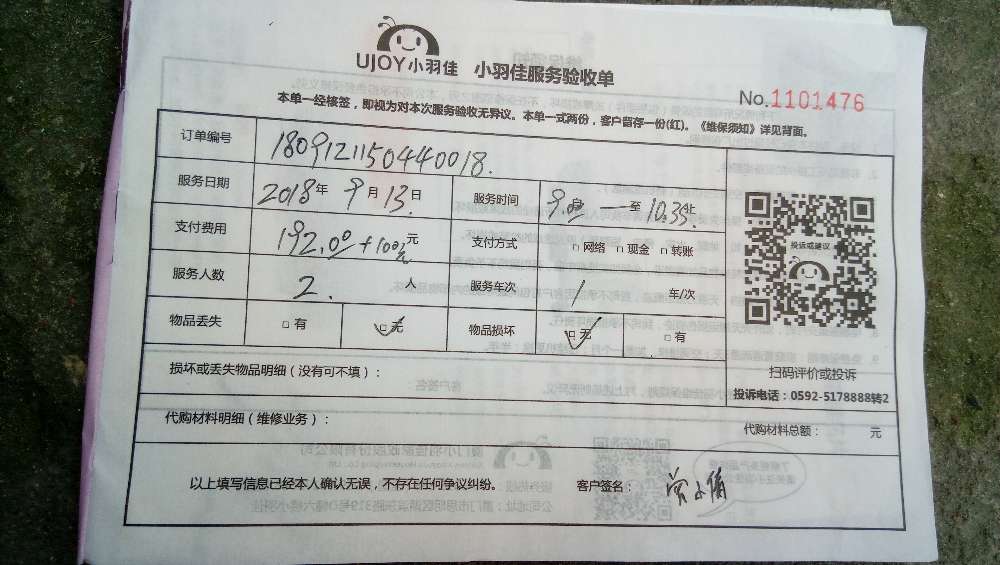 UJOY小羽佳 小羽佳服务验收单
No.1101476
本单一经核签，即视为对本次服务验收无异议。本单一式两份，客户留存一份(红)。《维保须知》详见背面。
订单编号 1809121150440018.
服务日期 2018年 9月 13日 服务时间 至 10.35止
支付费用 192.00+100元 支付方式 □网络 □现金 □转账
服务人数 2. 人 服务车次 1 车/次
物品丢失 □有 □无 物品损坏 □无 □有
投诉或建议
扫码评价或投诉
投诉电话：0592-5178888转2
损坏或丢失物品明细（没有可不填）：
代购材料明细（维修业务）： 代购材料总额： 元
以上填写信息已经本人确认无误，不存在任何争议纠纷。 客户签名：